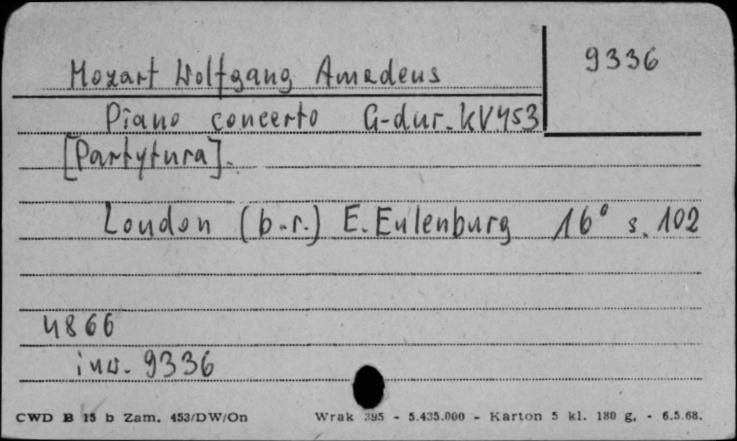 9336
Mozart Wolfgang Amadeus
Piano concerto G-dur. KV453
[Partytura].
London (b.r.) E. Eulenburg 16° s. 102
4866
inw. 9336
CWD B 15 b Zam. 453/DW/On Wrak 395 - 5.435.000 - Karton 5 kl. 180 g. - 6.5.68.